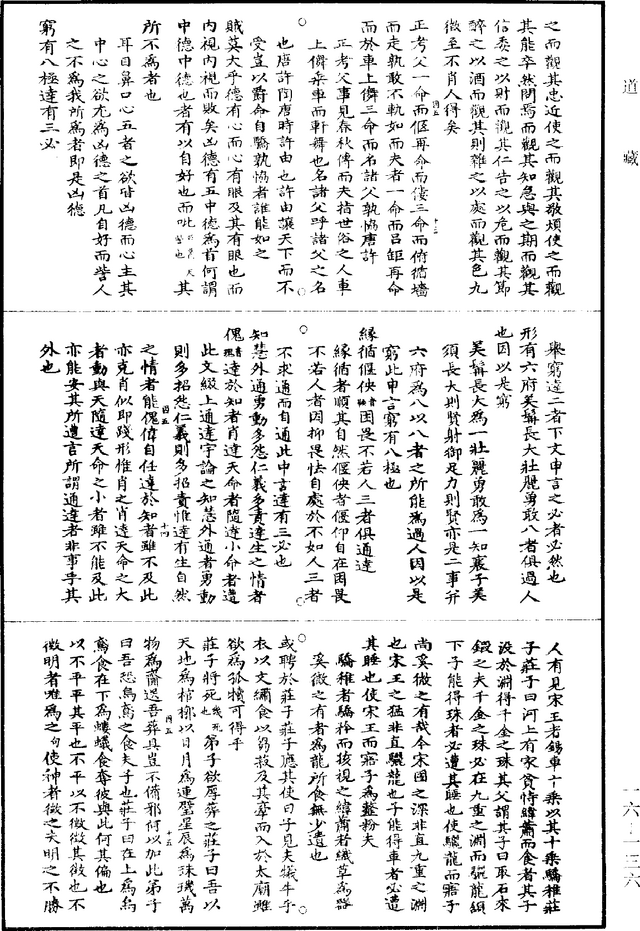 道藏
之而觀其忠近使之而觀其敬煩使之而觀
其能卒然問焉而觀其知急與之期而觀其
信委之以財而觀其仁告之以危而觀其節
醉之以酒而觀其則雜之以處而觀其色九
徵至不肖人得矣
正考父一命而傴再命而僂三命而俯循墻
而走孰敢不軌如而夫者一命而呂鉅再命
而於車上儛三命而名諸父孰協唐許
正考父事見春秋傳而夫指世俗之人車
上儛乘車而軒舞也名諸父呼諸父之名
也唐許陶唐時許由也許由讓天下而不
受豈以爵命自驕孰協者誰能如之
賊莫大乎德有心而心有眼及其有眼也而
內視內視而敗矣凶德有五中德為首何謂
中德中德也者有以自好也而吡其
所不為者也
耳目鼻口心五者之欲皆凶德而心主其
中心之欲尤為凶德之首凡自好而訾人
之不為我所為者即是凶德
窮有八極達有三必
舉窮達二者下文申言之必者必然也
形有六府美髯長大壯麗勇敢八者俱過人
也因以是窮
美髯長大為一壯麗勇敢為一知襄子美
須長大則賢射御足力則賢亦是二事并
六府為八以八者之所能為過人因以是
窮此申言窮有八極也
緣循偃佒困畏不若人三者俱通達
緣循者順其自然偃佒者偃仰自在困畏
不若人者因抑畏怯自處於不如人三者
不求通而自通此申言達有三必也
知慧外通勇動多怨仁義多責達生之情者
傀達於知者肖達大命者隨達小命者遭
此文綴上通達字論之知慧外通者勇動
則多招怨仁義則多招責惟達有生自然
之情者能傀偉自任達於知者雖不及此
亦克肖似即踐形惟肖之肖達天命之大
者動與天隨達天命之小者雖不能及此
亦能安其所遭言所謂通達者非事乎其
外也
人有見宋王者錫車十乘以其十乘驕稚莊
子莊子曰河上有家貧恃緯蕭而食者其子
沒於淵得千金之珠其父謂其子曰取石來
鍛之夫千金之珠必在九重之淵而驪龍頷
下子能得珠者必遭其睡也使驪龍而寤子
尚奚微之有哉今宋國之深非直九重之淵
也宋王之猛非直驪龍也子能得車者必遭
其睡也使宋王而寤子為韲粉夫
驕稚者驕矜而孩視之緯蕭者織草為器
奚微之有者為龍所食無少遺也
或聘於莊子莊子應其使曰子見夫犧牛乎
衣以文繡食以芻菽及其牽而入於太廟雖
欲為孤犢可得乎
莊子將死弟子欲厚葬之莊子曰吾以
天地為棺槨以日月為連璧星辰為珠璣萬
物為齎送吾葬具豈不備邪何以加此弟子
曰吾恐烏鳶之食夫子也莊子曰在上為烏
鳶食在下為螻蟻食奪彼與此何其偏也
以不平平其平也不平以不徵徵其徵也不
徵明者唯為之使神者徵之夫明之不勝
一六—一三六